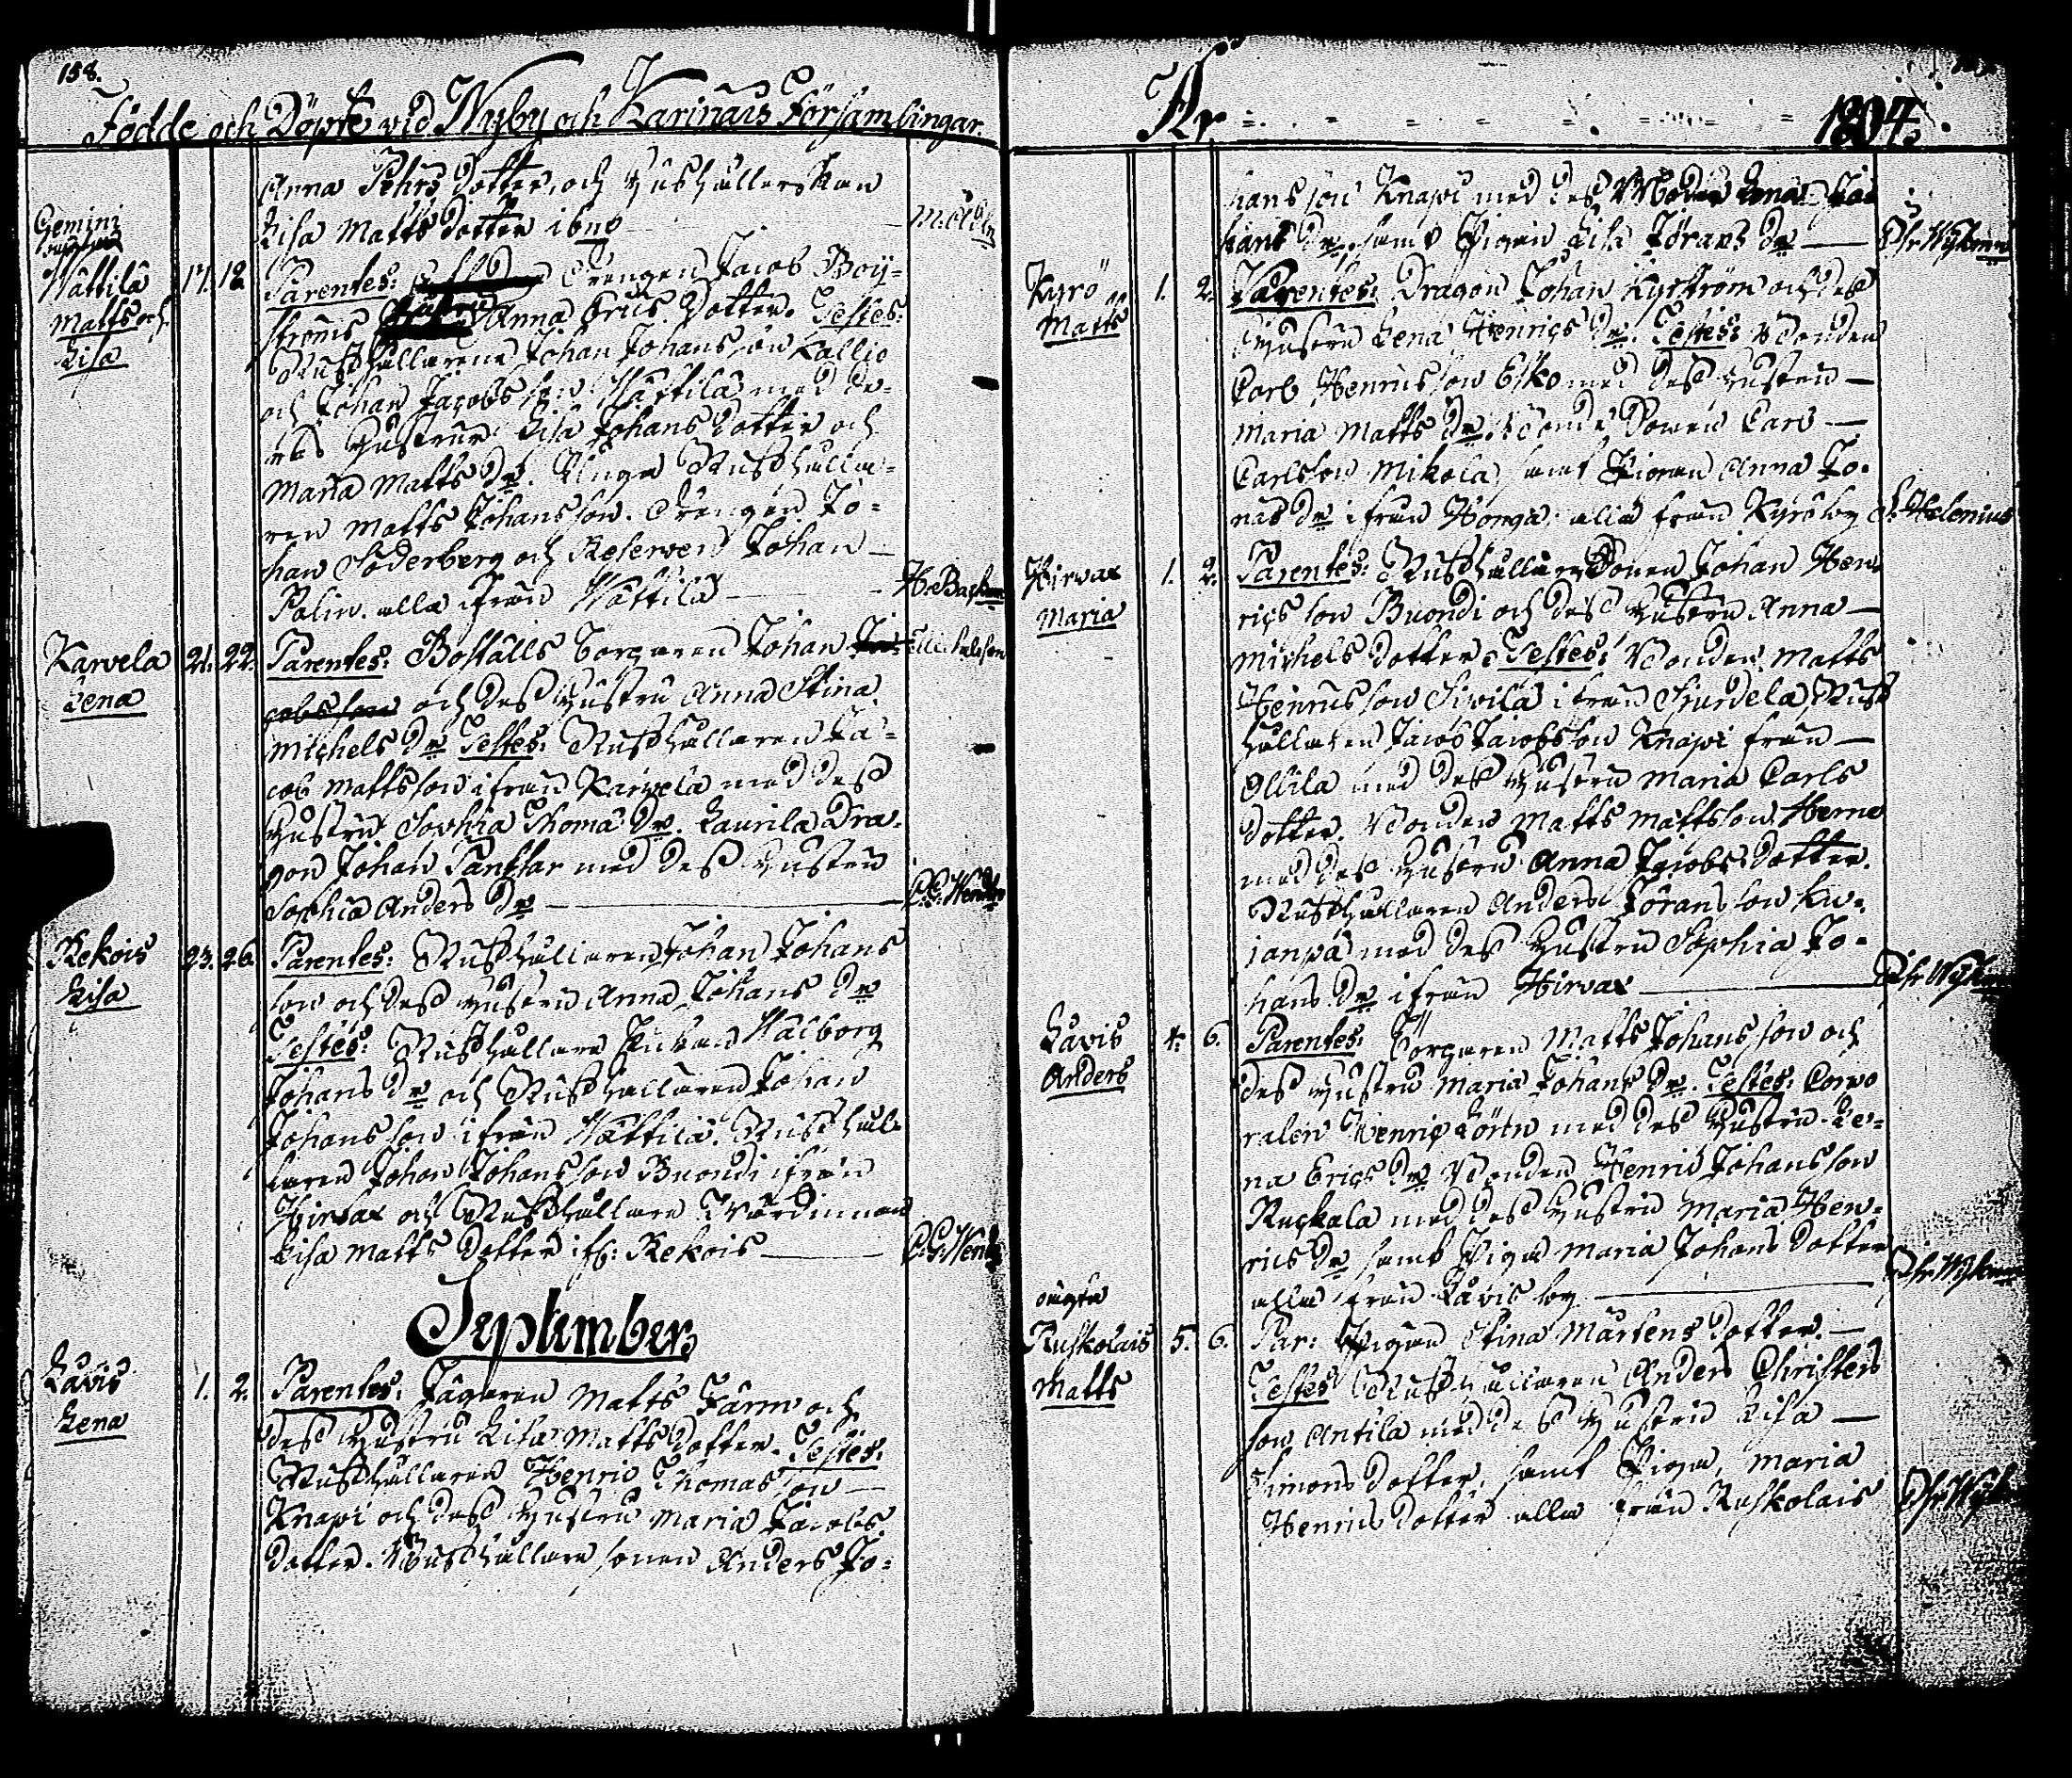 158.
Födde och Döpte wid Nykyrko och Karinais Församlingar.
Anna Pehrs dotter, och Hushållerskan
Gemini
Lisa Matts dotter ibm
Wättilä 17. 18. Parentes: Drengen Jacob Boij-
Matts och
ströms Anna Erics dotter. Testes:
Lisa
Rusthållarene Johan Johansson Kallio
och Johan Jacobsson Wättilä med de-
ras Hustrur Lisa Johans dotter och
Maria Matts dr. Unga Rusthålla-
ren Matts Johansson. Drengen Jo-
han Söderberg och Reserven Johan
Palin. alla ifrån Wättilä
Karvela 21. 22. Parentes: Boställs Torparen Johan Ja-
Lena
cobsson och dess Hustru Anna Stina
Michels dr Testes: Rusthållaren Ja-
cob Mattsson ifrån Karvela med dess
Hustru Sophia Thomæ dr. Laurila Dra-
gon Johan Pantsar med dess Hustru
Sophia Anders dr
Rekois 23. 26. Parentes: Rusthållaren Johan Johans
Lisa
son och dess Hustru Anna Johans dr
Testes: Rusthållare Enkan Walborg
Johans dr och Rusthållaren Johan
Johansson ifrån Wättilä. Rusthål-
laren Johan Johansson Buondi ifrån
Hirvax och Rusthållare Wärdinnan
Lisa Matts dotter ifr: Rekois
September
Lavis 1. 2. Parentes: Jägaren Matts Färm och
Lena
dess Hustru Lisa Matts dotter. Testes:
Rusthållaren Henric Thomasson
Knapi och dess Hustru Maria Jacobs
dotter. Rusthållare sonen Anders Jo-
År 1804.
hansson Knapi med dess Moder Lena Jo-
hans dr, samt Pigan Lisa Jörans dr
Kyrö 1. 2. Parentes: Dragon Johan Kyrström och dess
Matts
Hustru Lena Henrics dr. Testes: Bonden
Carl Henricsson Esko med dess Hustru
Maria Matts dr. Bonde Sonen Carl
Carlsson Mikola, samt Pigan Anna Jo-
nas dr ifrån Honga. alla från Kyrö by J. Helenius
Hirvax 1. 2. Parentes: Rusthållare Sonen Johan Hen-
Maria
ricsson Buondi och dess Hustru Anna
Michels dotter. Testes: Bonden Matts
Henricsson Sivilä ifrån Sjurdela, Rust
hållaren Jacob Jacobsson Knapi från
Ollila med dess Hustru Maria Carls
dotter. Bonden Matts Mattsson Herne
med dess Hustru Anna Jacobs dotter.
Rusthållaren Anders Jöransson Ku-
janpä med dess Hustru Sophia Jo-
hans dr ifrån Hirvax
Lavis 4. 6. Parentes: Torparen Matts Johansson och
Anders
dess Hustru Maria Johans dr. Testes: Corpo
ralen Henric Lörn med dess Hustru Le-
na Erics dr Bonden Henric Johansson
Ruckala med dess Hustru Maria Hen-
rics dr samt Piga Maria Johans dotter
alla från Lavis by
oägta
Ruskolais 5. 6. Par: Pigan Stina Mårtens dotter.
Matts
Testes Rusthållaren Anders Christers
son Antila med dess Hustru Lisa
Simons dotter, samt Piga, Maria
Henrics dotter alla från Ruskolais